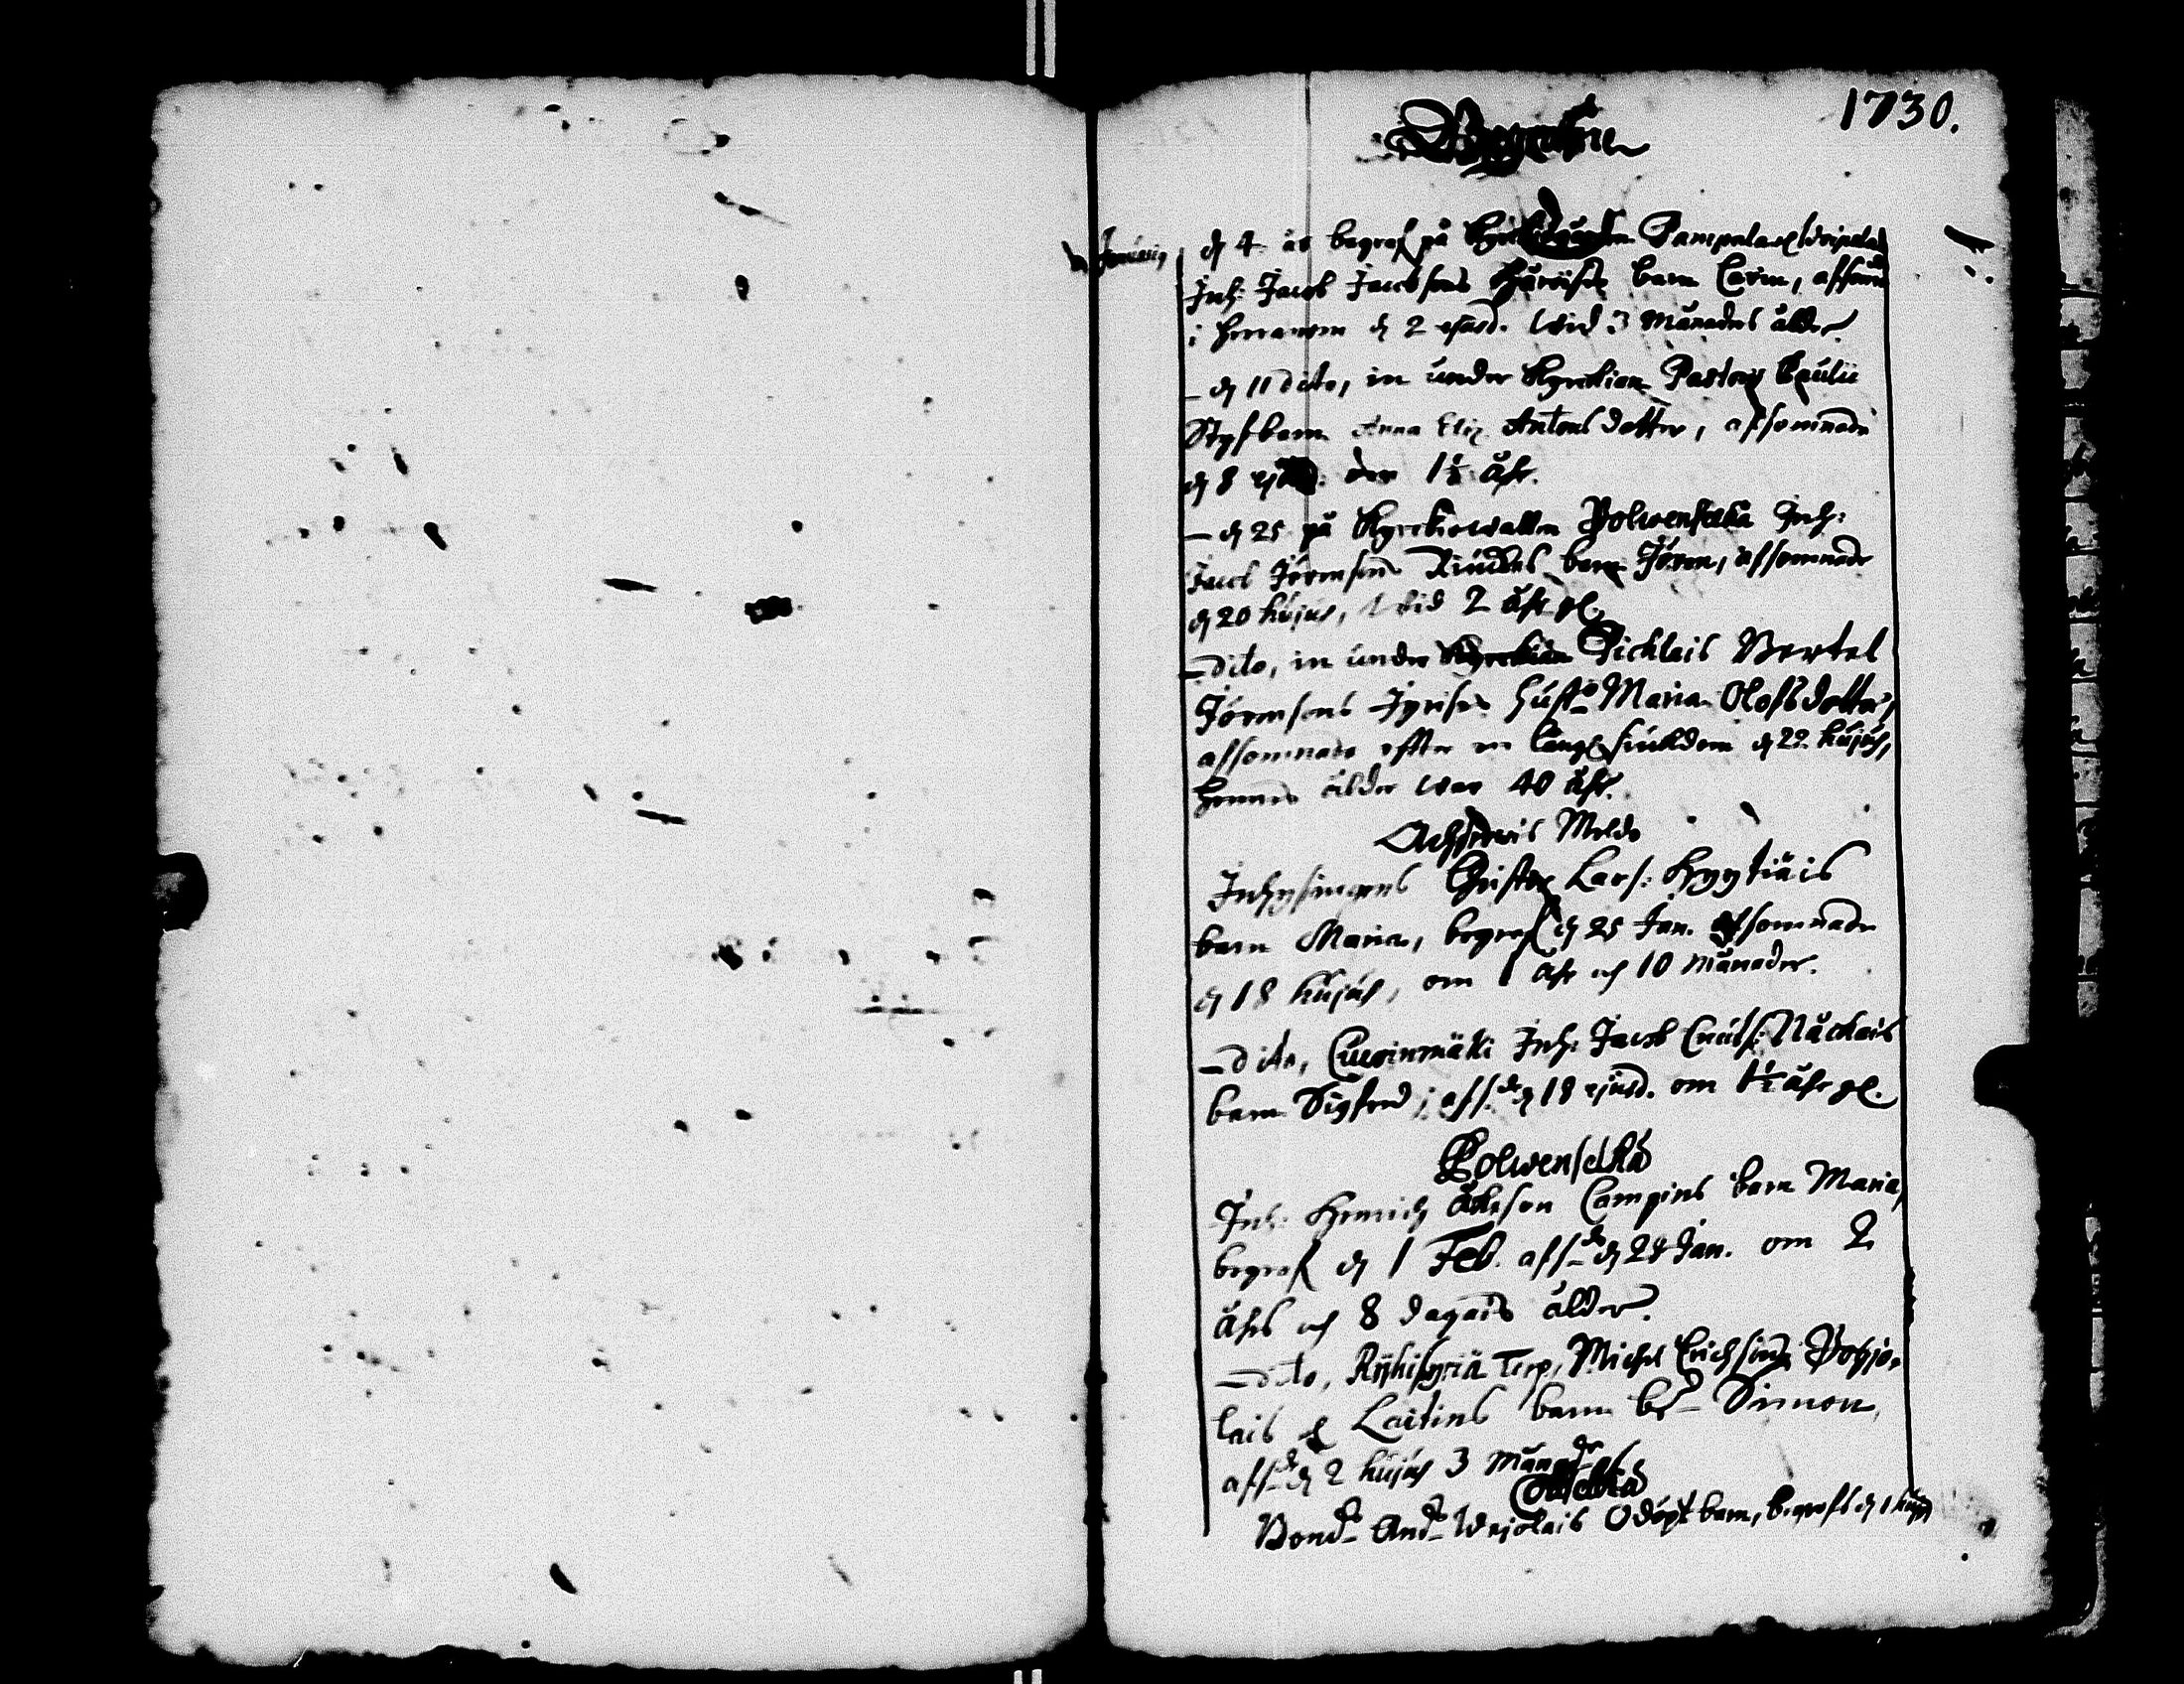 1730.
Begrafne
Januarij
d 4 är begraf på Kyrkiogården Pampala
Inh: Jacob Jacobsons barn Carin, afsomn
i Herranom d 2 ejusd. wid 3 Månaders ålder
– d 11 dito, in under Kyrckian Pastoris Paulii
Styfbarn Anna Eliz. Antons dotter, afsomnade
d 8 ejusd: 1½ åhr.
– d 25 på Kyrckiowallen Polwenselkä Inh:
Jacob Jörensons barn Jören, afsomnade
d 20 hujus, wid 2 åhr gl.
– dito, in under Kyrckian Picklais Bertel
Jörensons hust– Maria Olofsdotter,
afsomnade effter en lång siuckdom d 22 hujus,
hennes ålder war 40 åhr.
Achjerwis Melde
Inhysingens Christer Lars: Hyytiäis
barn Maria, begraf d 25 Jan. afsomnade
d 18 hujus, om 1 åhr och 10 Månader.
– dito, Cuusinmäki Inh: Jacob Cnuts: Näckais
barn Sigfred, afs:de d 18 ejusd. om 1½ åhr gl.
Polwenselkä
Inh: Henrich Åkeson Campins barn Maria,
begraf d 1 Feb. afs–de d 24 Jan. om 2
åhrs och 8 dagars ålder.
– dito, Torp, Michel Erichsons Pohjo-
lais Laitins barn be– Simon,
afs–de d 2 hujus 3 Månader
Bond– And– Wejolais Odöpt barn, begrafs d 1 hujus